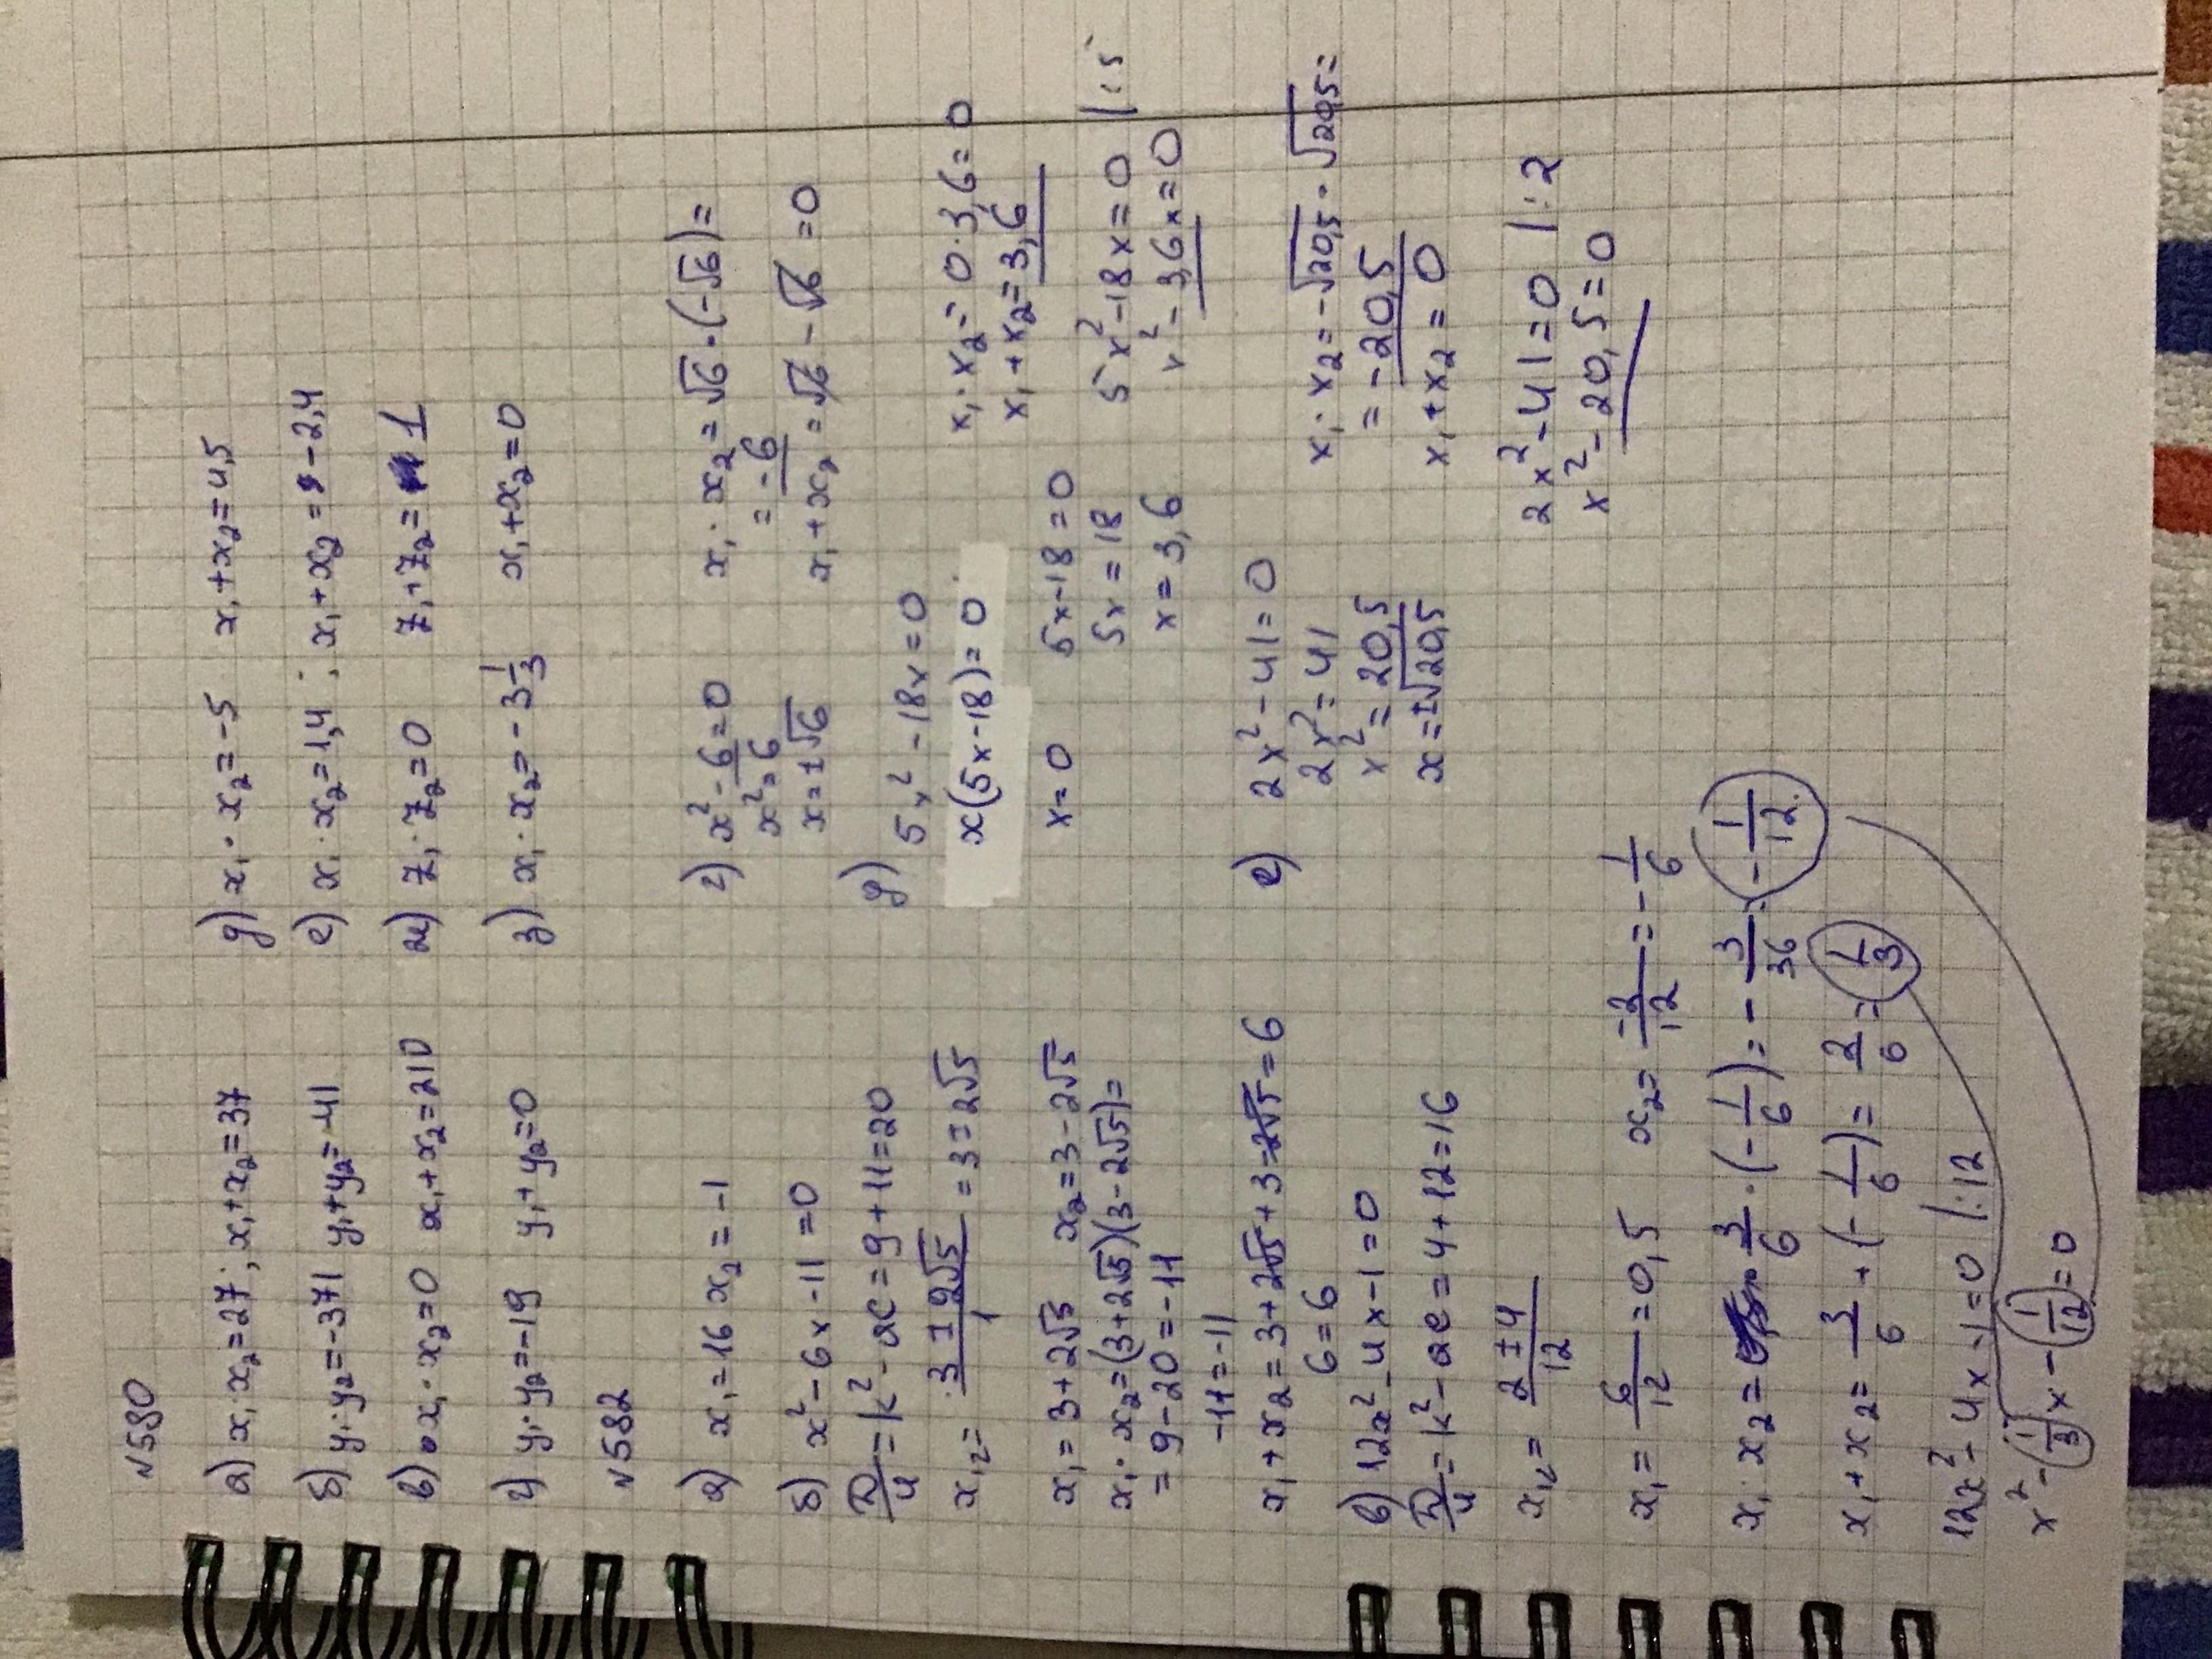 N580
а) x₁·x₂=27; x₁+x₂=37
б) y₁·y₂=-371 y₁+y₂=-41
в) x₁·x₂=0 x₁+x₂=210
г) y₁·y₂=-19 y₁+y₂=0
д) x₁·x₂=-5 x₁+x₂=4,5
е) x₁·x₂=1,4; x₁+x₂=-2,4
ж) z₁·z₂=0 z₁+z₂=1
з) x₁·x₂=-3 1/3 x₁+x₂=0
N582
а) x₁=16 x₂=-1
б) x²-6x-11=0
D/4=k²-ac=9+11=20
x₁,₂= 3±2√5/1 =3±2√5
x₁=3+2√5 x₂=3-2√5
x₁·x₂=(3+2√5)(3-2√5)=
=9-20=-11
-11=-11
x₁+x₂=3+2√5+3-2√5=6
6=6
в) 12x²-4x-1=0
D/4=k²-ac=4+12=16
x₁,₂= 2±4/12
x₁= 6/12 =0,5 x₂= -2/12 =- 1/6
x₁·x₂= 3/6 ·(- 1/6)=- 3/36 =- 1/12
x₁+x₂= 3/6 +(- 1/6)= 2/6 = 1/3
12x²-4x-1=0 |:12
x²-(1/3)x-(1/12)=0
г) x²-6=0
x²=6
x=±√6
x₁·x₂=√6·(-√6)=
=-6
x₁+x₂=√6-√6=0
д) 5x²-18x=0
x(5x-18)=0
x=0 5x-18=0
5x=18
x=3,6
x₁·x₂=0·3,6=0
x₁+x₂=3,6
5x²-18x=0 |:5
x²-3,6x=0
е) 2x²-41=0
2x²=41
x²=20,5
x=±√20,5
x₁·x₂=-√20,5·√20,5=
=-20,5
x₁+x₂=0
2x²-41=0 |:2
x²-20,5=0